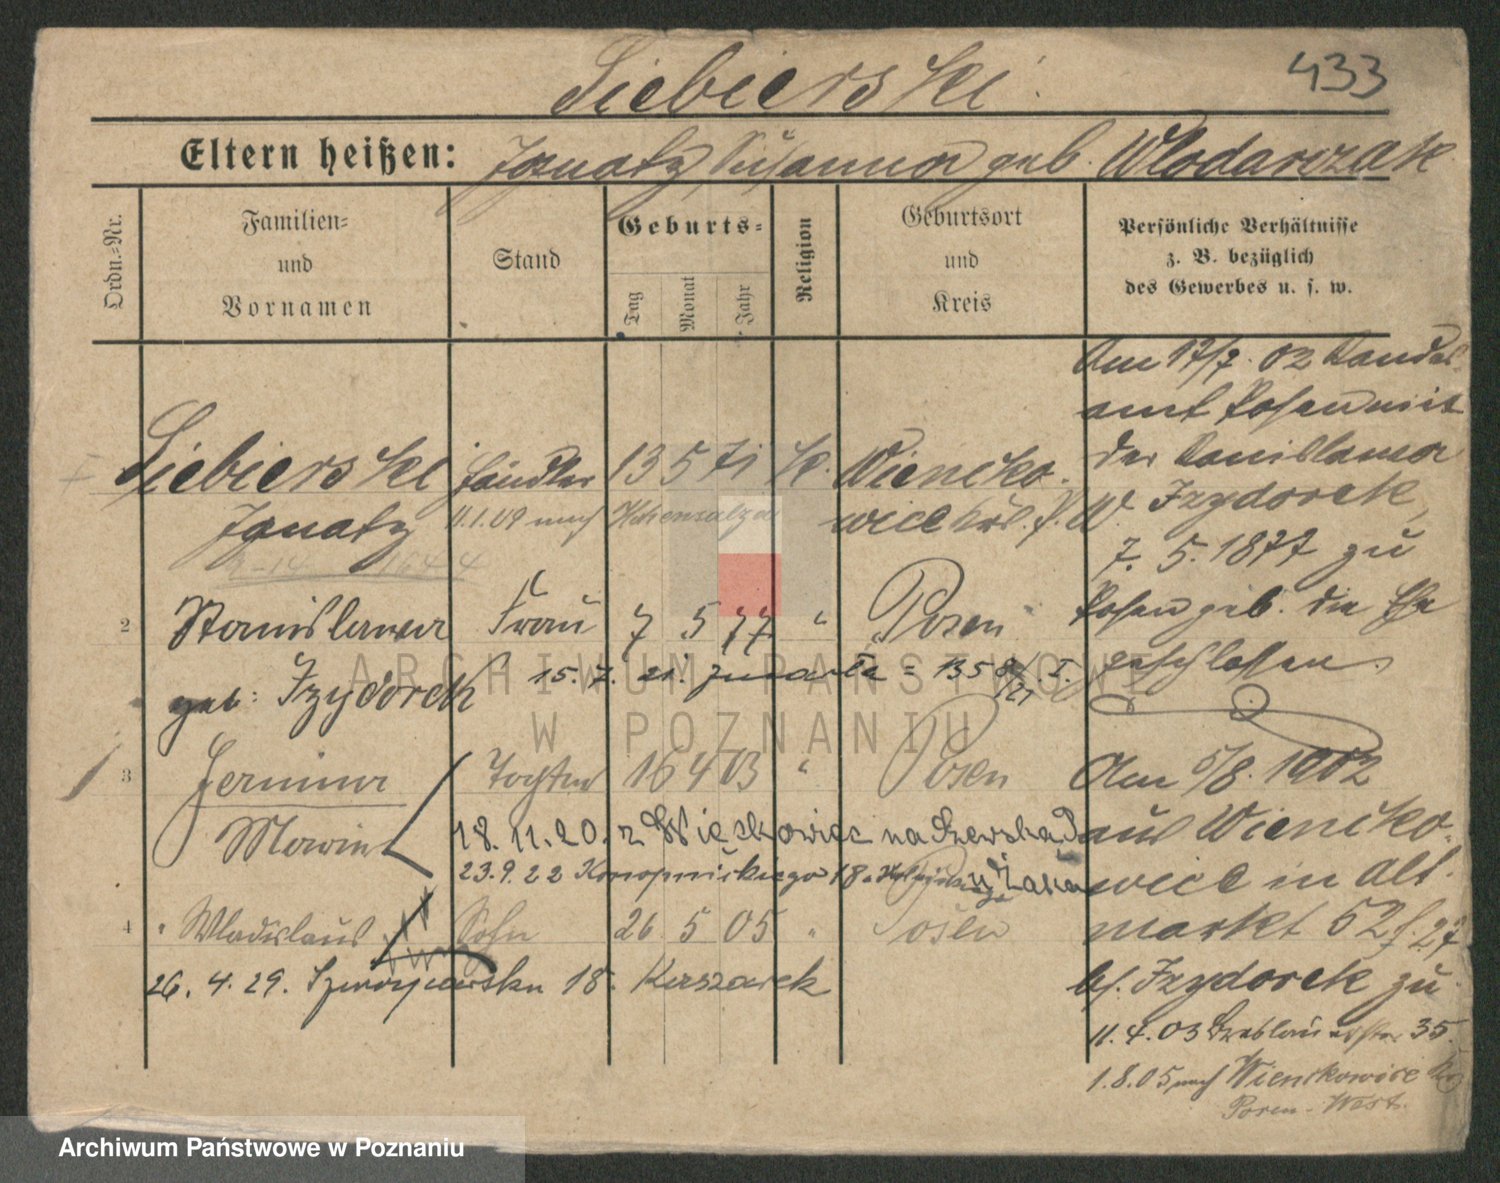 Siebierski
433
Eltern heißen: Ignatz, Susanna geb. Wlodarczak
Ordn.-Nr.
Familien- und Vornamen
Stand
Geburts-
Tag
Monat
Jahr
Religion
Geburtsort und Kreis
Persönliche Verhältnisse
z. B. bezüglich
des Gewerbes u. s. w.
Siebierski Händler 13 5 71 K. Wiencko-
Ignatz 11.1.09 nach Hohensalza wice Krs. P. W.
2 Stanislawa Frau 7 5 77 " Posen
geb. Izydorek
15. 7. 21.
3 Janina Tochter 16 4 03 " Posen
Maria
18. 11. 20. z Więckowic na
23. 9. 22 18
4 " Wladislaus Sohn 26 5 05 " Posen
26. 4. 29. 18.
Am 17/7. 02 Standes-
amt Posen mit
der Stanislawa
Izydorek,
7. 5. 1877 zu
Posen geb. die Ehe
geschlossen.
Am 5/8. 1902
aus Wiencko-
wice in Alt-
markt 52 f. 27
bei Izydorek zu
11. 4. 03 Breslauerstr 35.
1. 8. 05 nach Wienckowice Krs
Posen-West.
ARCHIWUM PAŃSTWOWE
W POZNANIU
Archiwum Państwowe w Poznaniu